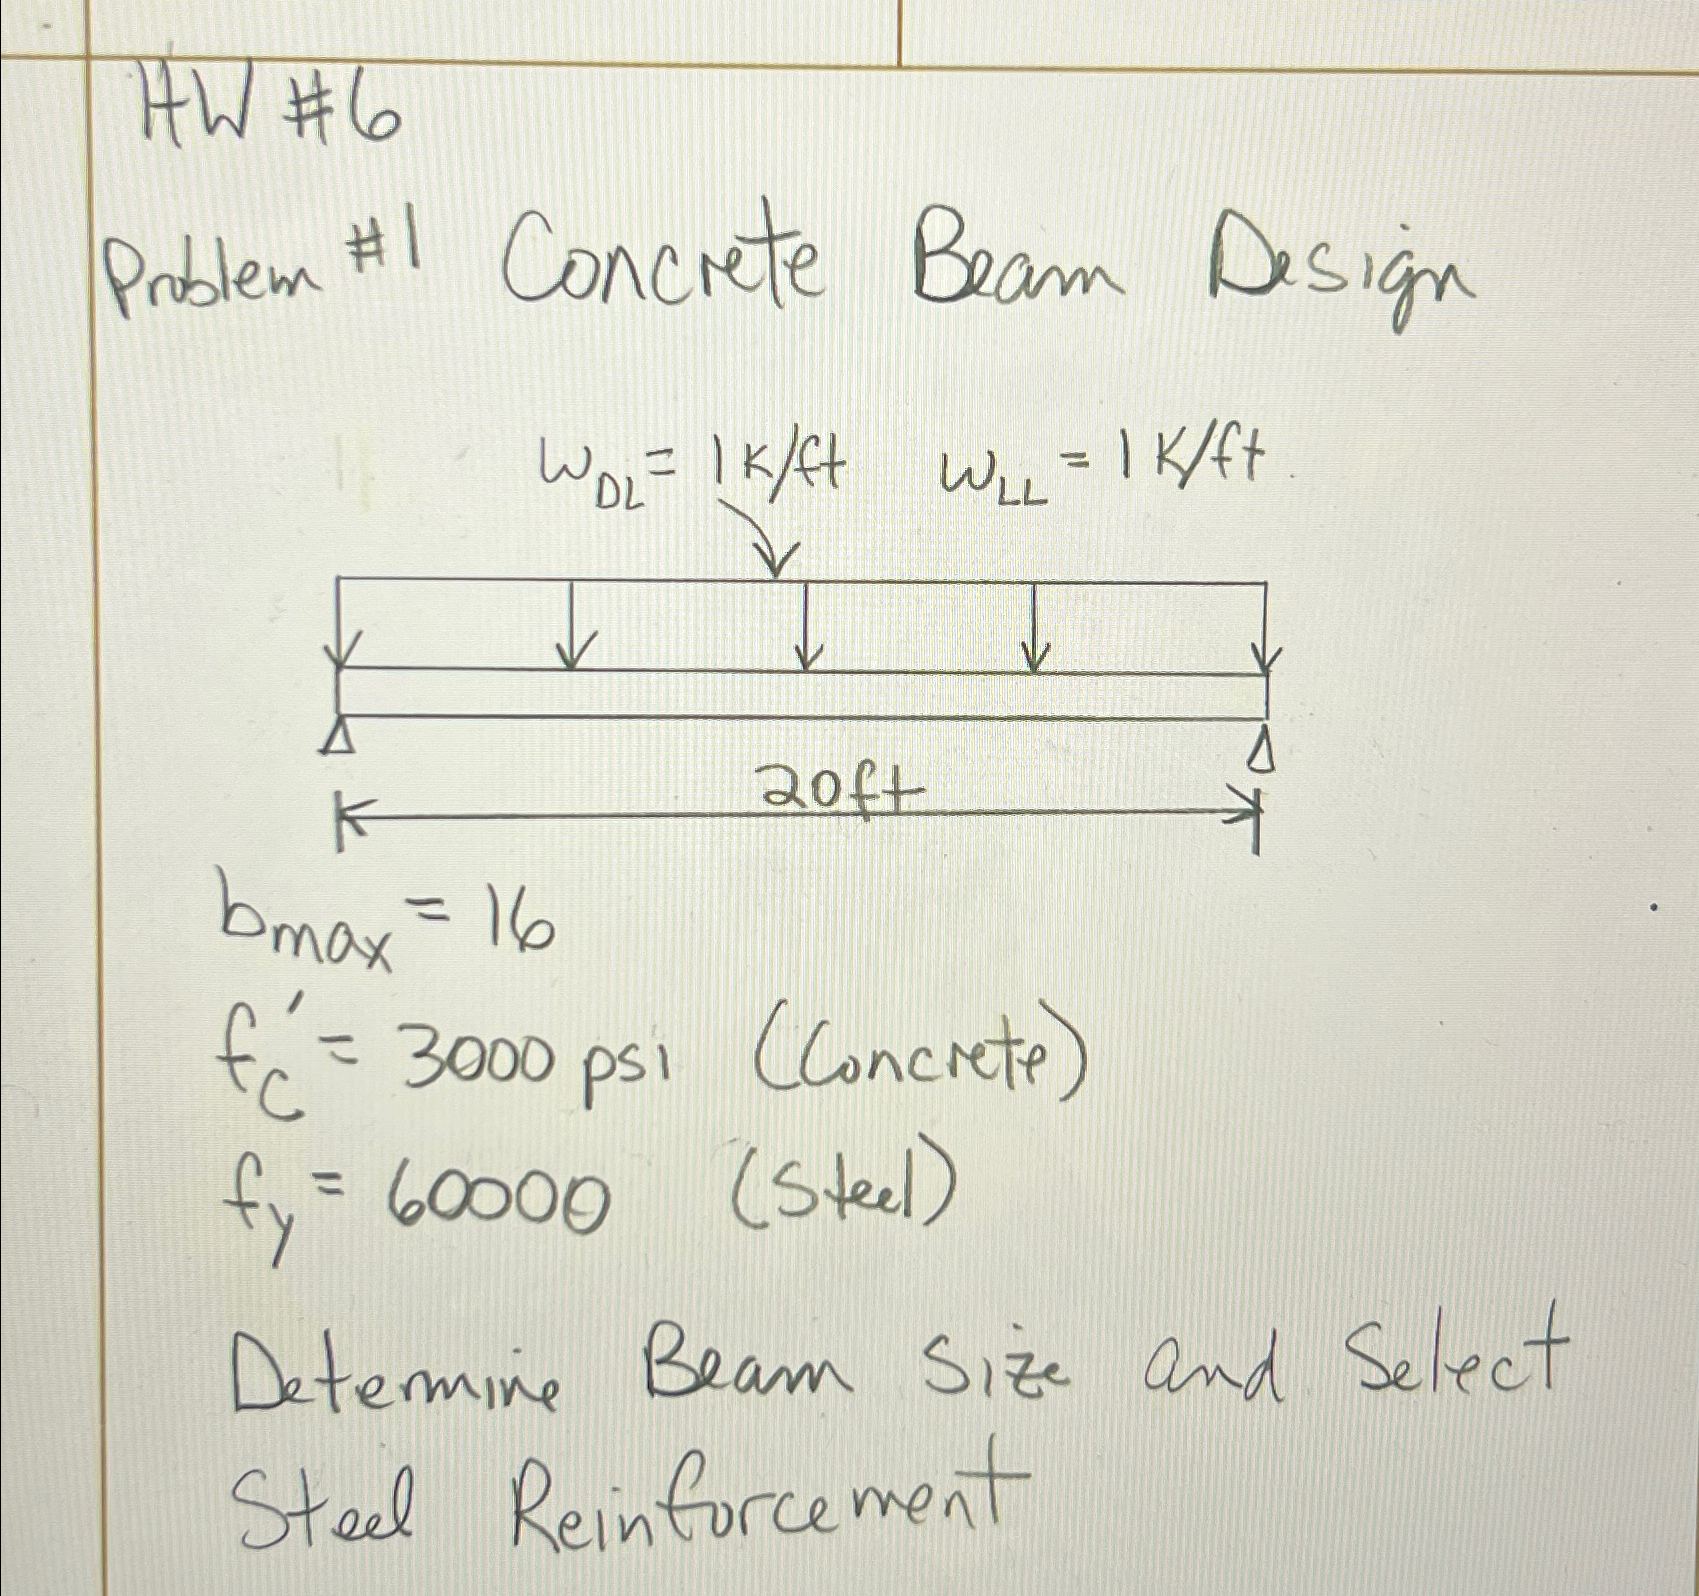 HW #6
Problem #1 Concrete Beam Design
W_DL = 1 K/ft W_LL = 1 K/ft
20ft
b_max = 16
f_c' = 3000 psi (Concrete)
f_y = 60000 (Steel)
Determine Beam Size and Select
Steel Reinforcement